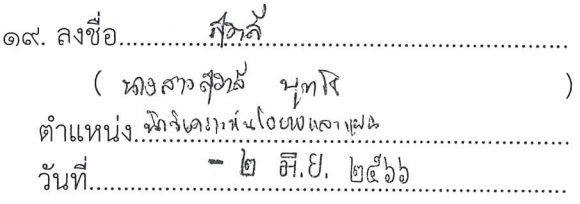 ๑๙. ลงชื่อ.......สุชาลี.......
( นางสาวสุชาลี )
ตำแหน่ง.นักวิเคราะห์นโยบายและแผน
วันที่.......- ๒ มิ.ย. ๒๕๖๖